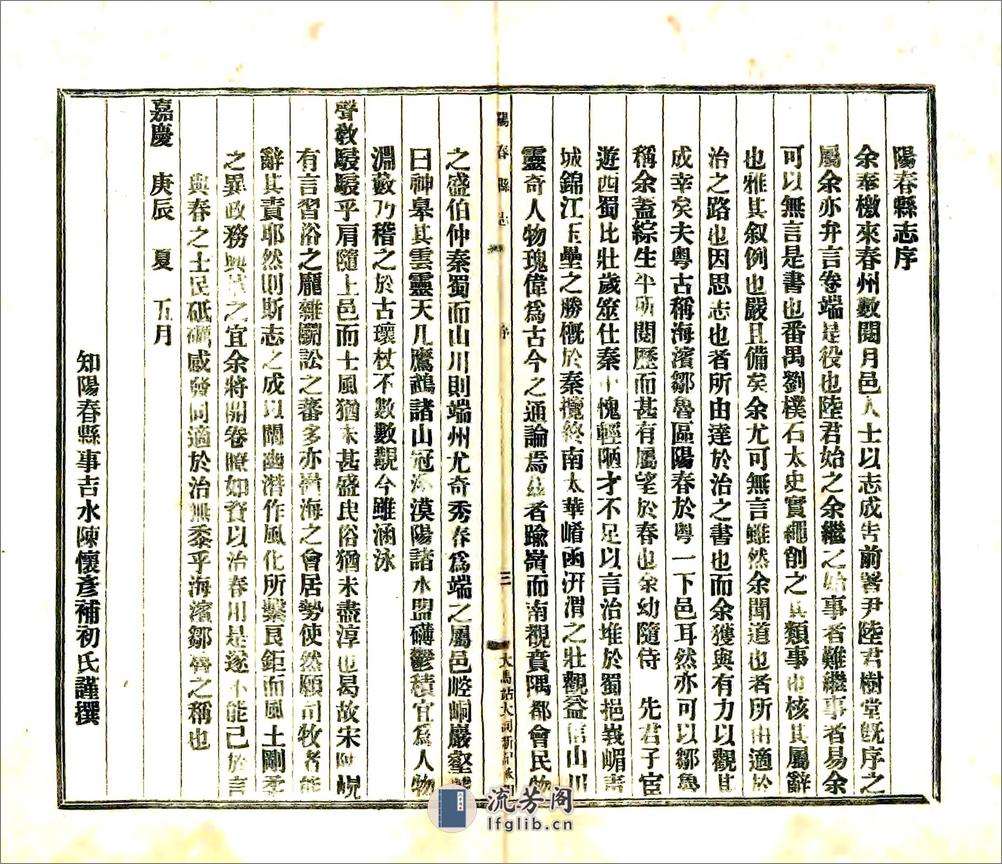 陽春縣志序
余奉檄來春州數閱月邑人士以志成告前署尹陸君樹堂既序之
屬余亦弁言卷端是役也陸君始之余繼之始事者難繼事者易余
可以無言是書也番禺劉樸石太史實纏創之其類事也核其屬辭
也雅其叙例也嚴且備矣余尤可無言雖然余聞道也者所由適於
治之路也因思志也者所由達於治之書也而余獲與有力以觀其
成幸矣夫粤古稱海濱鄒魯區陽春於粤一下邑耳然亦可以鄒魯
稱余蓋綜生平所閱歷而甚有屬望於春也余幼隨侍 先君子宦
遊西蜀比壯歲筮仕秦中愧輕陋才不足以言治堆於蜀挹峩嵋青
城錦江玉壘之勝慨於秦攬終南太華崤函汧渭之壯觀益信山川
靈奇人物瑰偉爲古今之通論焉兹者踰嶺而南觀賁隅都會民物
之盛伯仲秦蜀而山川則端州尤奇秀春爲端之屬邑崆峒巖壑
曰神皋其雲靈天几鷹鵝諸山冠 漠陽諸水盟礴鬱積宜爲人物
淵藪乃稽之於古瓌杖不數數觀今雖涵泳
聲敎駸駸乎肩隨上邑而士風猶未甚盛民俗猶未盡淳也曷故宋 峴
有言習俗之龐雜鬬訟之蕃多亦嶺海之會居勢使然願司牧者能
辭其責耶然則斯志之成以闡幽潛作風化所繫良鉅而風土剛柔
之異政務興 之宜余將開卷瞭如資以治春用是遂不能已於言
與春之士民砥礪感發同適於治無忝乎海濱鄒魯之稱也
嘉慶 庚辰 夏 五月
知陽春縣事吉水陳懷彥補初氏謹撰
陽春縣志
序
三
流芳阁
lfglib.cn